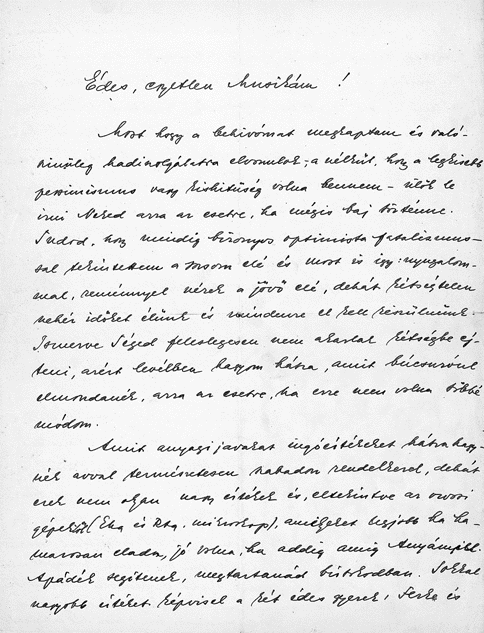 Édes, egyetlen Musikám !
Most hogy a behívómat megkaptam és való-
színűleg hadiszolgálatra elvonulok, a nélkül, hogy a legkisebb
pessimismus vagy kishitűség volna bennem – ülök le
írni Neked arra az esetre, ha mégis baj történne.
Tudod, hogy mindig bizonyos optimista fatalismus-
sal tekintettem a sorsom elé és most is így: nyugalom-
mal, reménnyel nézek a jövő elé, dehát kétségtelen
nehéz időket élünk és mindenre el kell készülnünk.
Ismerve Téged feleslegesen nem akarlak kétségbe ej-
teni, azért levélben hagyom hátra, amit búcsúzóul
elmondanék, arra az esetre, ha erre nem volna többé
módom.
Amit anyagi javakat ingóértékeket hátrahagy-
nék avval természetesen szabadon rendelkezel, dehát
ezek nem olyan nagy értékek és, eltekintve az orvosi
gépektől (Eka és Rtg. mikroskop), amelyeket legjobb ha ha-
marosan eladsz, jó volna, ha addig amíg Anyámék
Apádék segítenek, megtartanád birtokodban. Sokkal
nagyobb értéket képvisel a két édes gyerek, és